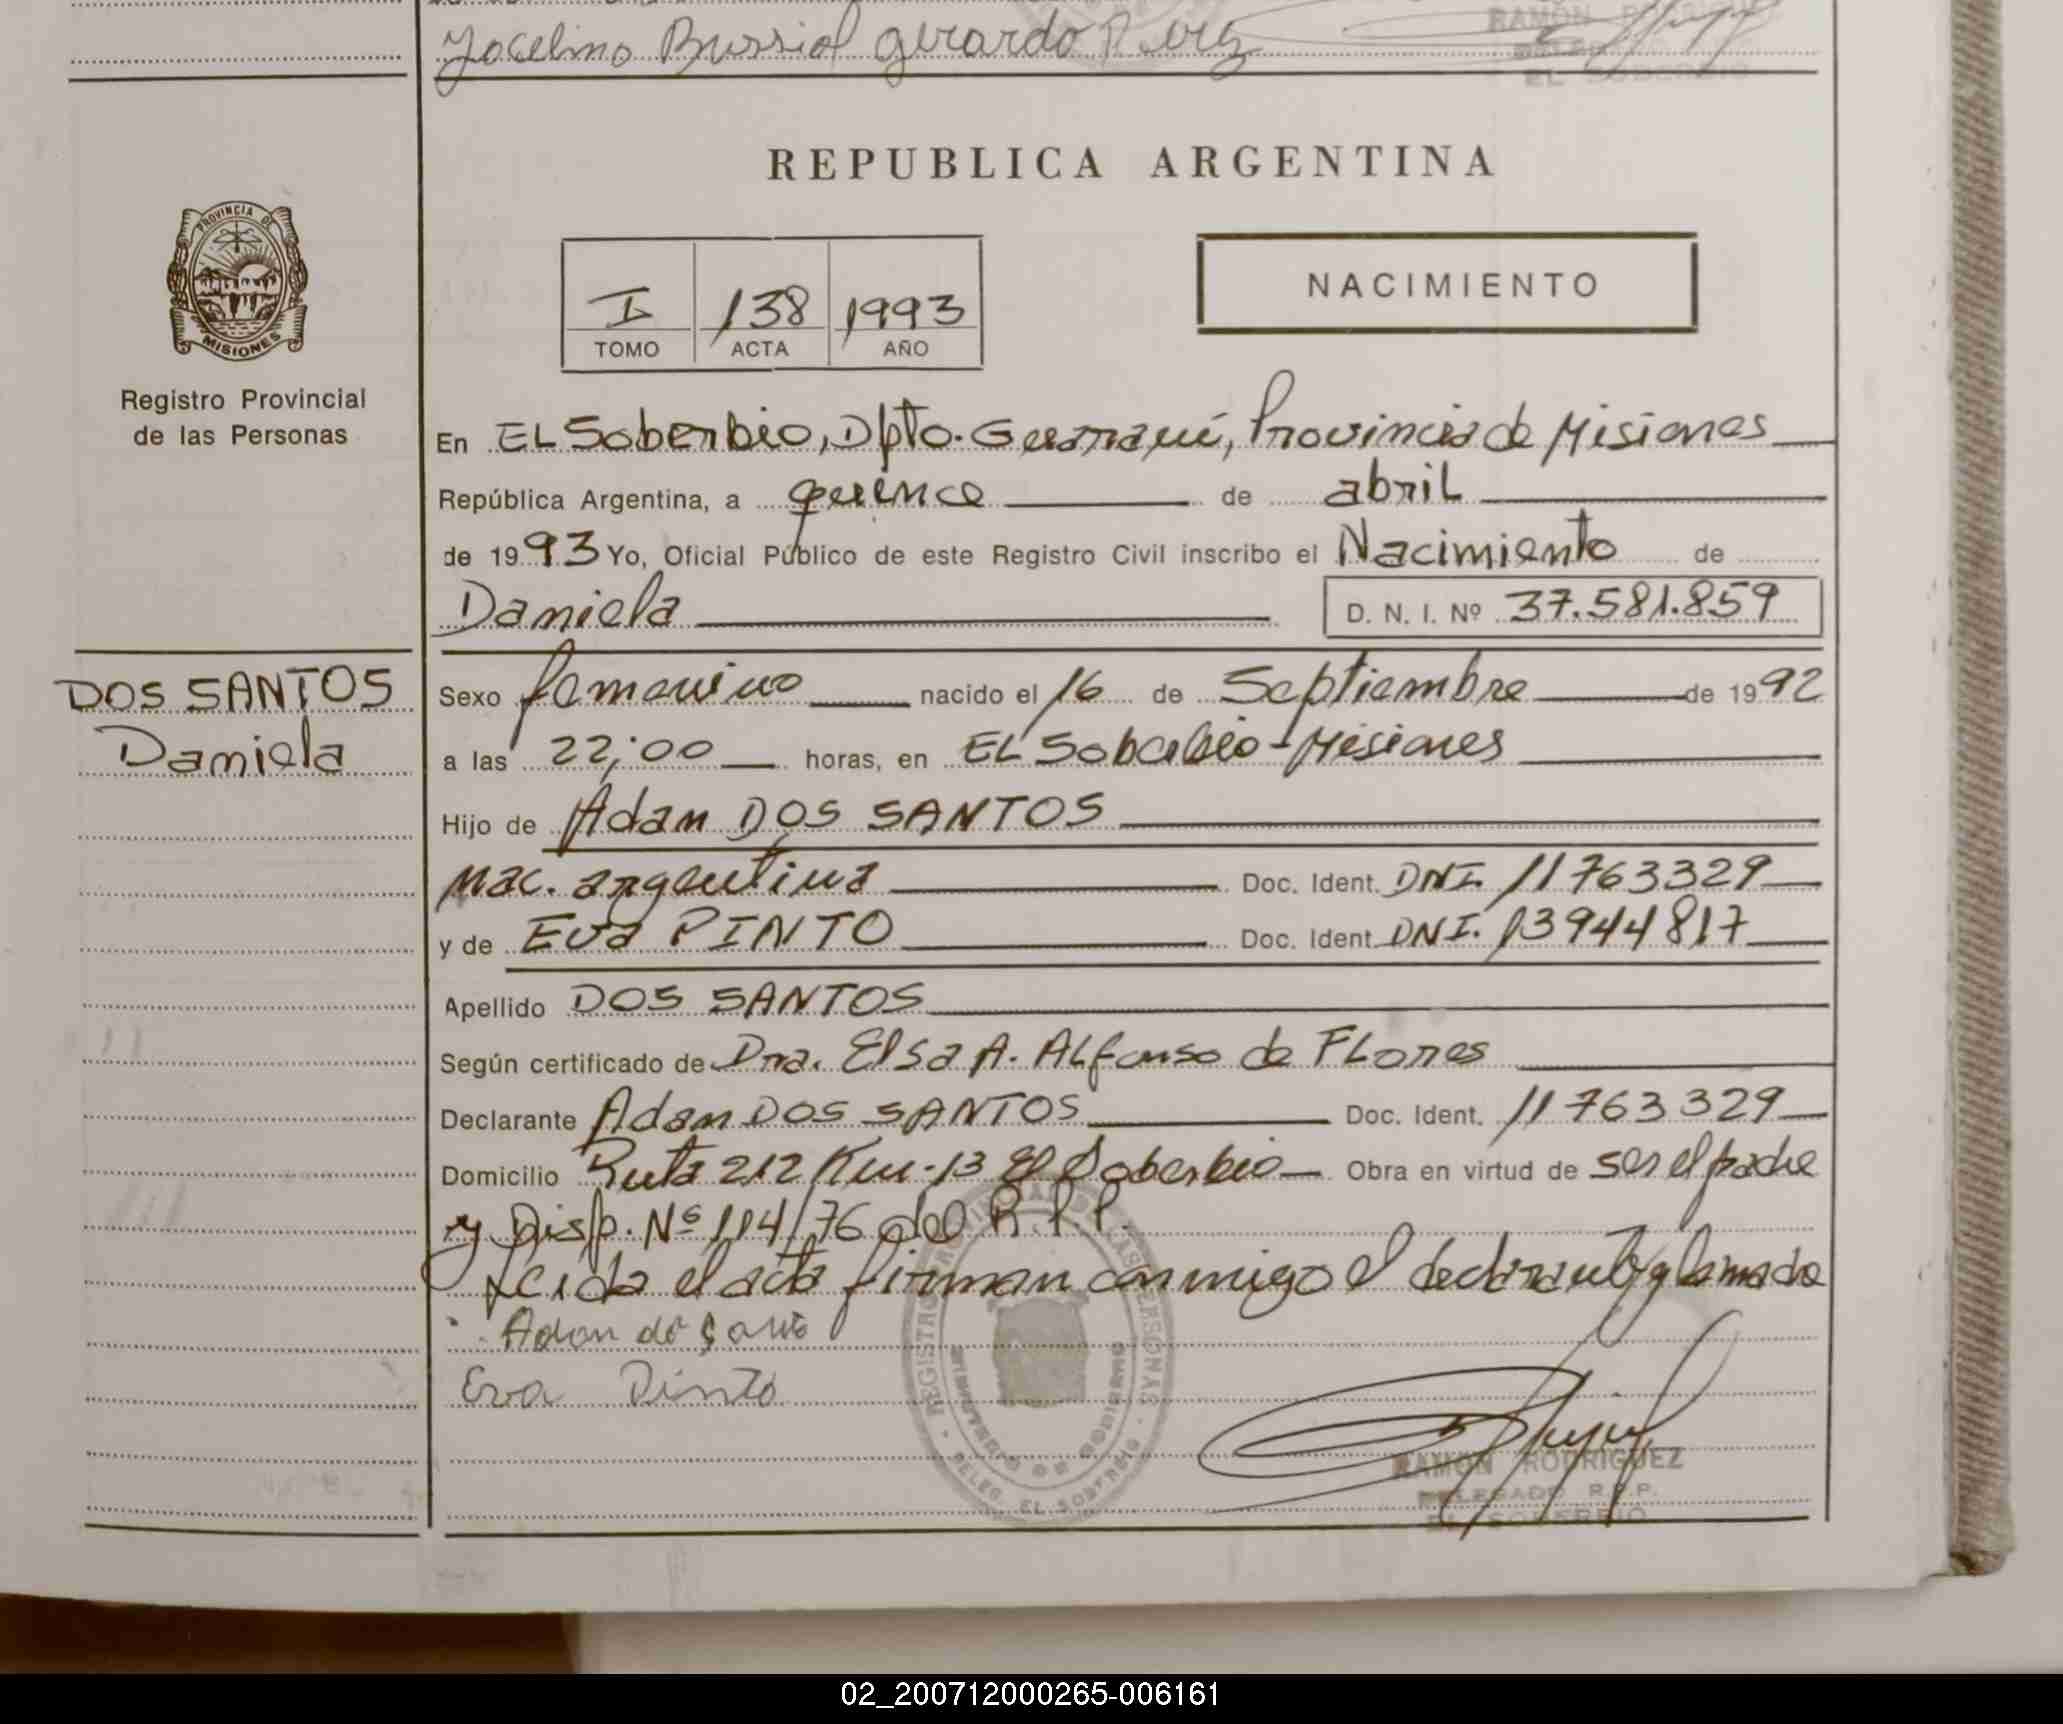 Jocelino Bussiol gerardo Perez
RAMON RODRIGUEZ
EL SOBERBIO
REPUBLICA ARGENTINA
PROVINCIA DE
MISIONES
Registro Provincial
de las Personas
I 138 1993
TOMO ACTA AÑO
NACIMIENTO
En EL Soberbio, Dpto. Guaraní, Provincia de Misiones
República Argentina, a quince de abril
de 1993 Yo, Oficial Público de este Registro Civil inscribo el Nacimiento de
Daniela D. N. I. Nº 37.581.859
DOS SANTOS
Daniela
Sexo femenino nacido el 16 de Septiembre de 1992
a las 22;00 horas, en EL Soberbio - Misiones
Hijo de Adam DOS SANTOS
Nac. argentina Doc. Ident. DNI. 11763329
y de Eva PINTO Doc. Ident. DNI. 13944817
Apellido DOS SANTOS
Según certificado de Dra. Elsa A. ALfonso de FLores
Declarante Adam DOS SANTOS Doc. Ident. 11763329
Domicilio Ruta 212 Km-13 El Soberbio Obra en virtud de ser el padre
y Disp. Nº 114/76 del R.P.P.
Leida el acta firman conmigo el declarante y la madre
Adan do
Eva Pinto
REGISTRO PROVINCIAL DE LAS PERSONAS
MINISTERIO DE GOBIERNO
DELEG. EL SOBERBIO
RAMON RODRIGUEZ
DELEGADO R.P.P.
EL SOBERBIO
02_200712000265-006161